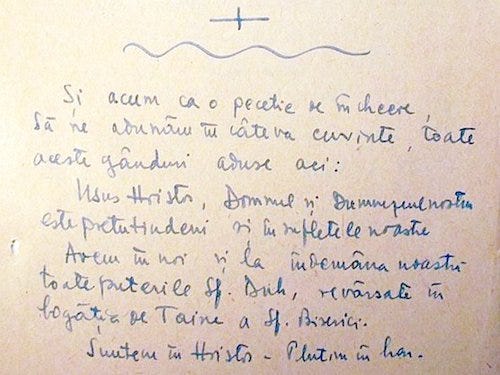 Și acum ca o pecetie de încheere,
Să ne adunăm în câteva cuvinte, toate
aceste gânduri aduse aci:
Iisus Hristos, Domnul și Dumnezeul nostru
este pretutindeni și în sufletele noastre
Avem în noi și la îndemâna noastră
toate puterile Sf. Duh, revărsate în
bogăția de Taine a Sf. Biserici.
Suntem în Hristos - Plutim în har.